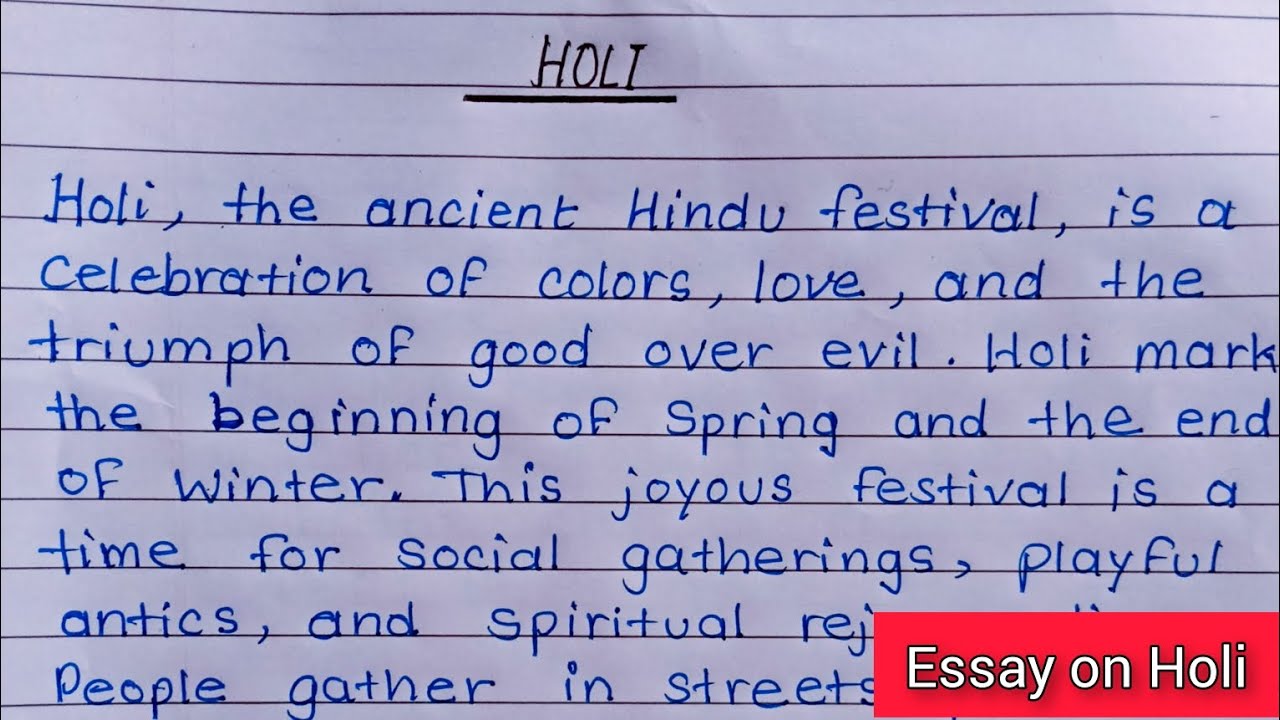 HOLI
Holi, the ancient Hindu festival, is a
celebration of colors, love, and the
triumph of good over evil. Holi mark
the beginning of spring and the end
of winter. This joyous festival is a
time for social gatherings, playful
antics, and spiritual
People gather in streets
Essay on Holi